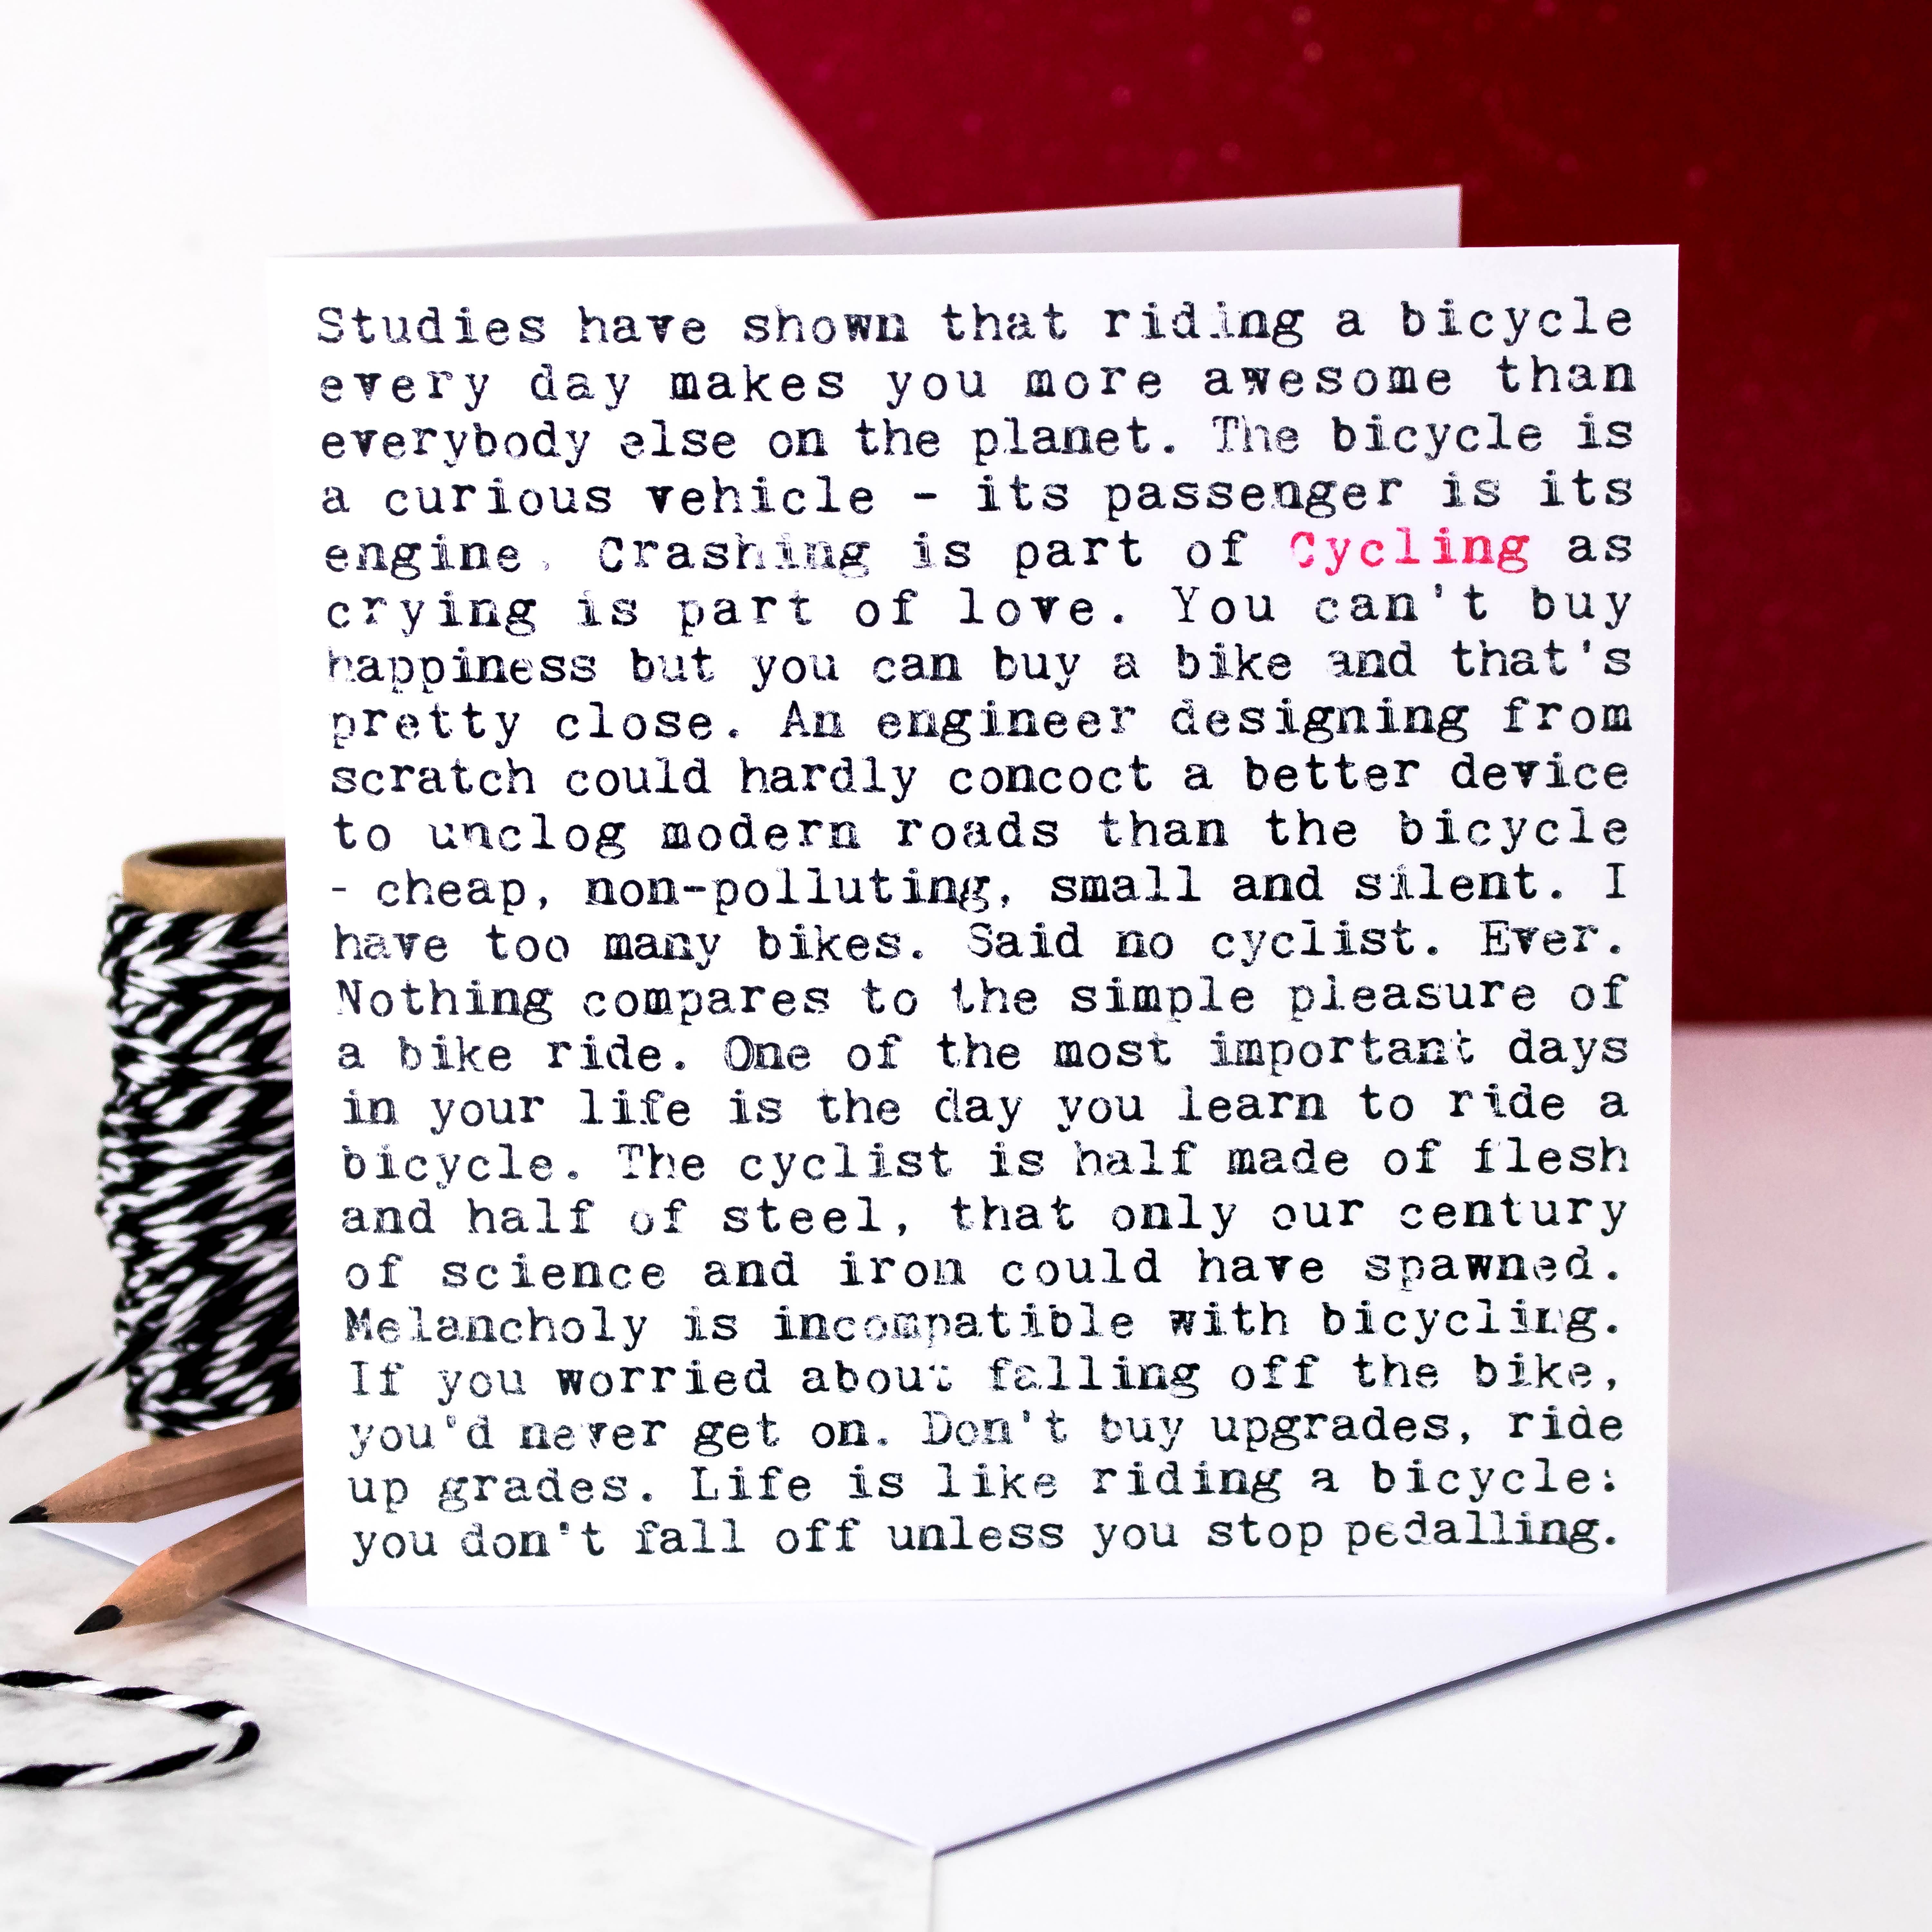 Studies have shown that riding a bicycle
every day makes you more awesome than
everybody else on the planet. The bicycle is
a curious vehicle - its passenger is its
engine. Crashing is part of Cycling as
crying is part of love. You can't buy
happiness but you can buy a bike and that's
pretty close. An engineer designing from
scratch could hardly concoct a better device
to unclog modern roads than the bicycle
- cheap, non-polluting, small and silent. I
have too many bikes. Said no cyclist. Ever.
Nothing compares to the simple pleasure of
a bike ride. One of the most important days
in your life is the day you learn to ride a
bicycle. The cyclist is half made of flesh
and half of steel, that only our century
of science and iron could have spawned.
Melancholy is incompatible with bicycling.
If you worried about falling off the bike,
you'd never get on. Don't buy upgrades, ride
up grades. Life is like riding a bicycle:
you don't fall off unless you stop pedalling.